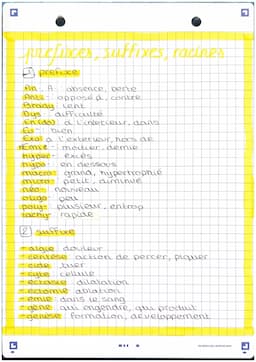 prefixes, suffixes, racines
1 prefixe
An, A absence, perte
Anti- opposé à, contre
Brady lent
Dys difficulté
à l'interieur, dans
Eu- bien
Exo- à l'exterieur, hors de
moitier, demie
hyper- excès
hypo- en dessous
macro- grand, hypertrophie
micro petit, diminué
néo- nouveau
oligo peu
poly- plusieur, entrop
tachy rapide
2 suffixe
-algie douleur
-centèse action de percer, piquer
-cide tuer
-cyte cellule
-ectasie dilatation
-ectomie ablation
-émie dans le sang
-gène qui engendre, qui produit
-genèse formation, développement